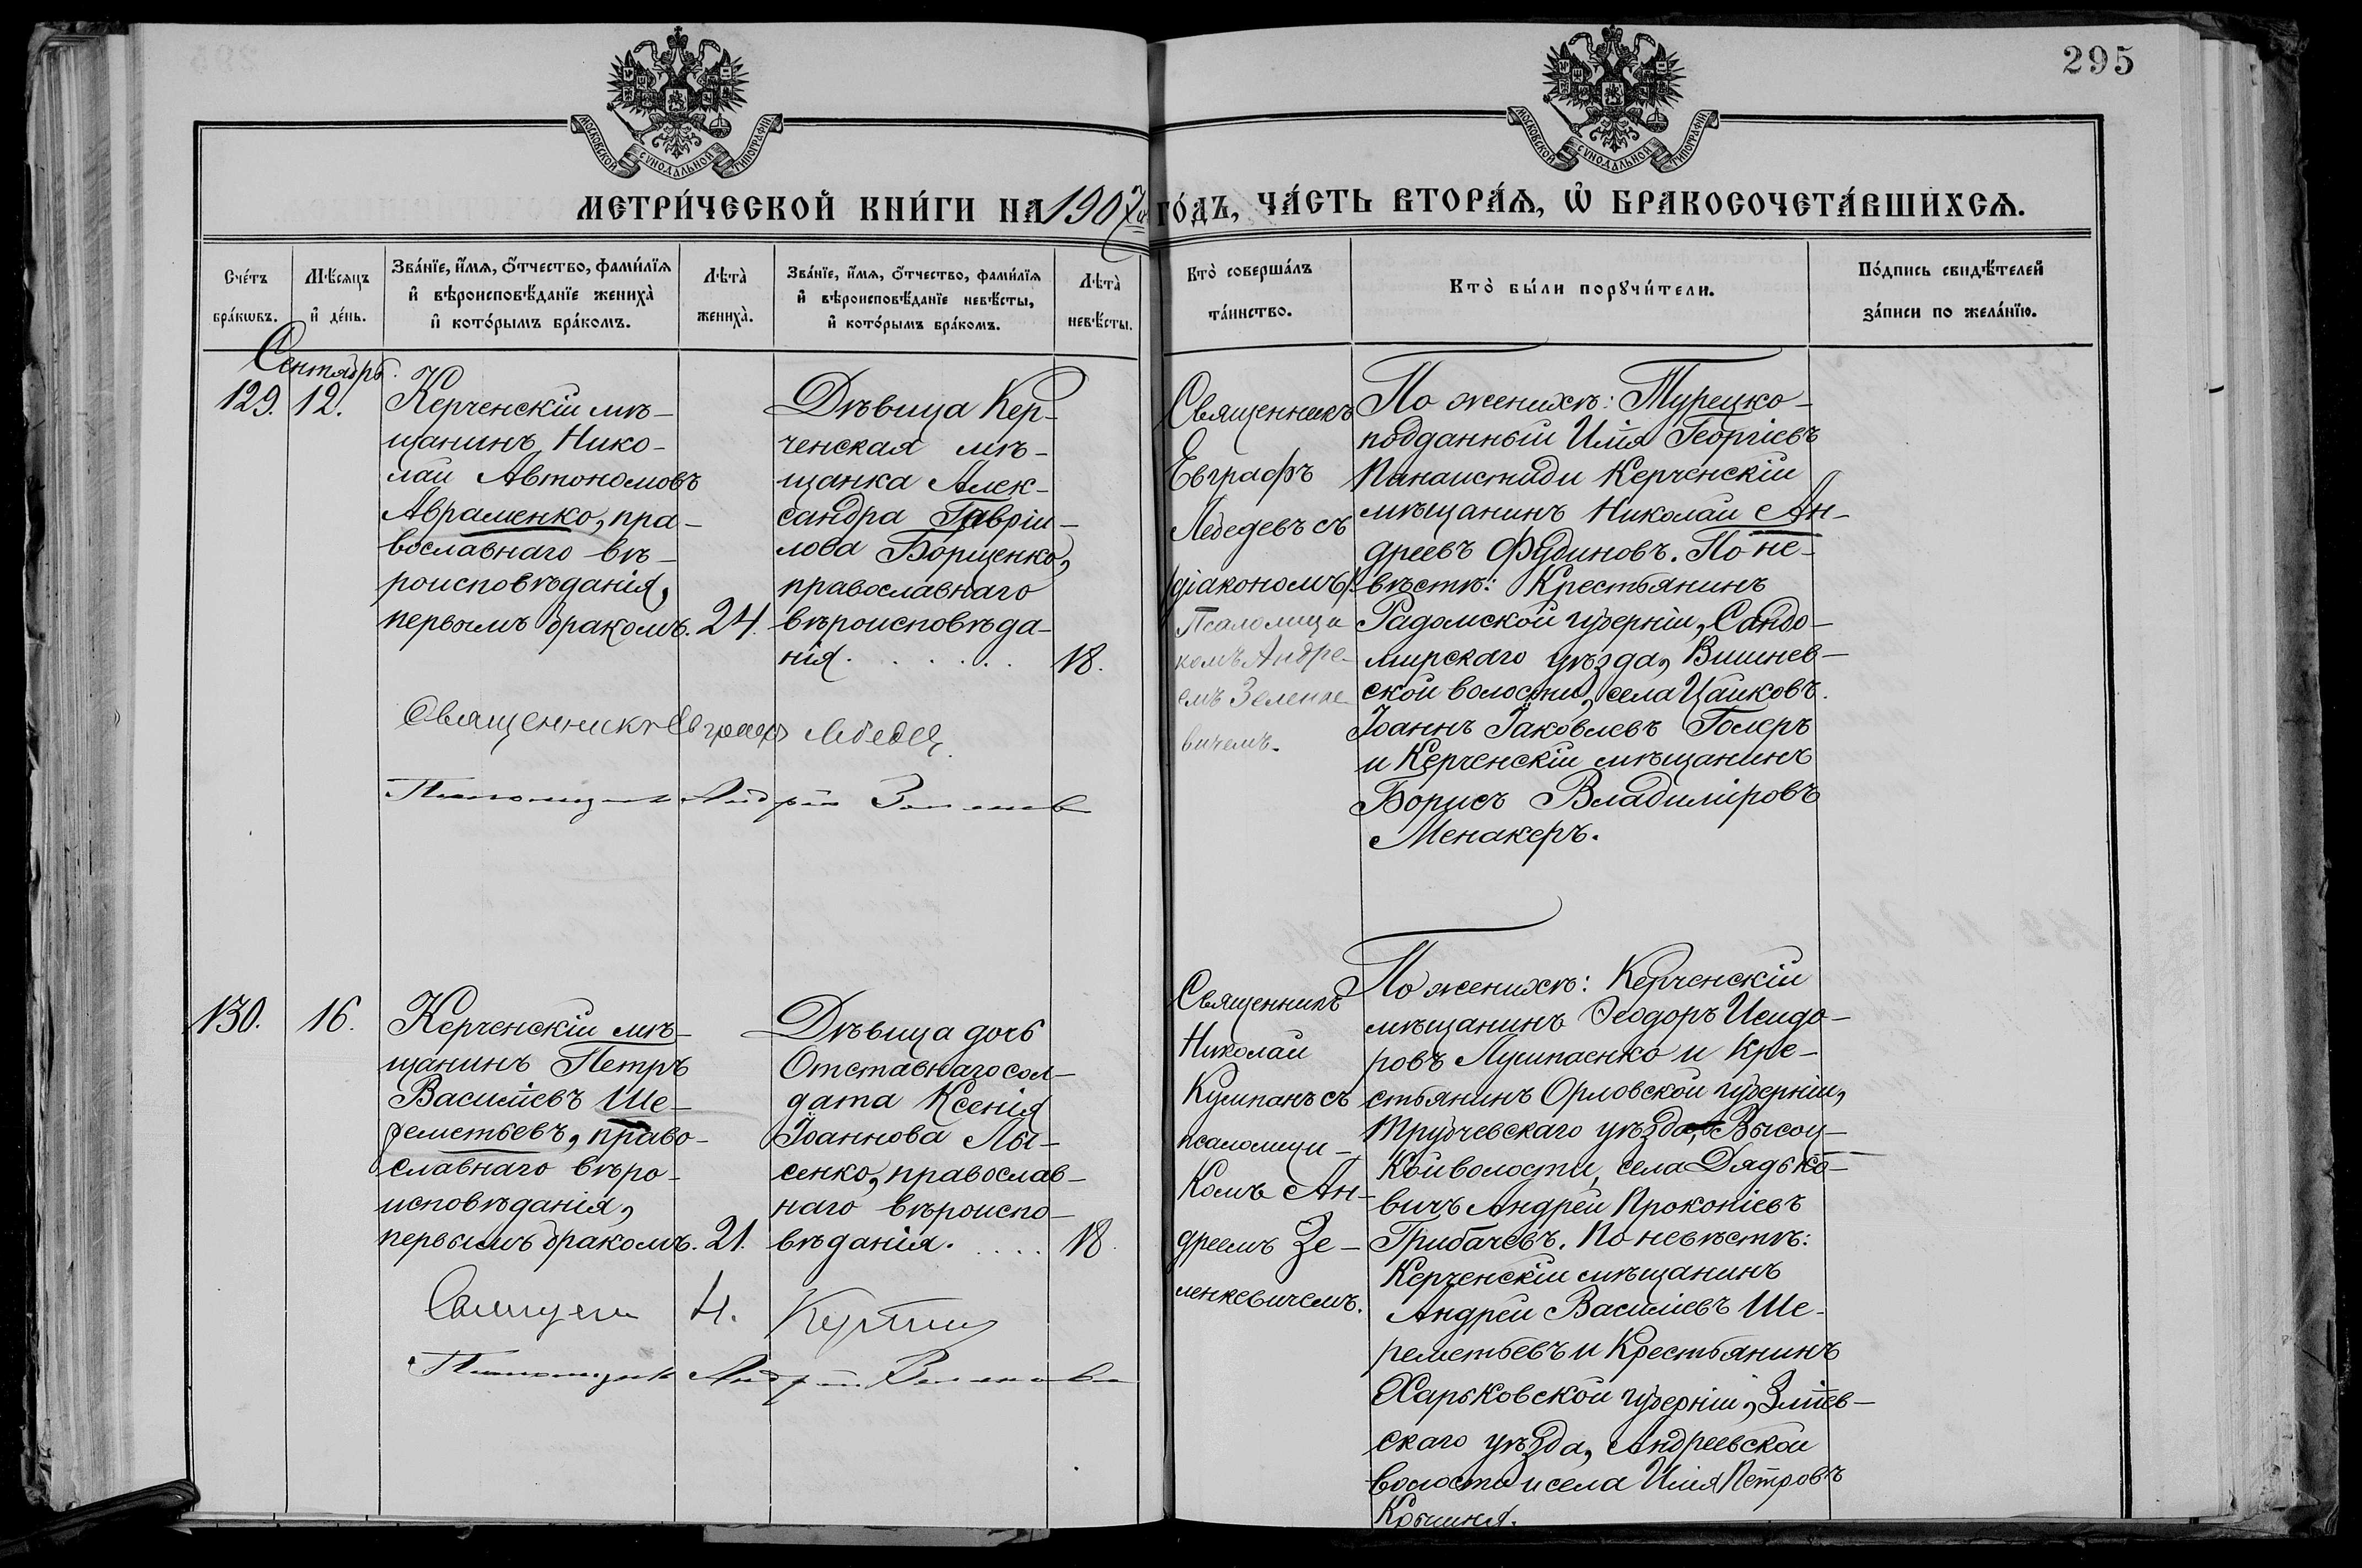 295
МОСКОВСКОЙ СѴНОДАЛЬНОЙ ТИПОГРАФІИ
МОСКОВСКОЙ СѴНОДАЛЬНОЙ ТИПОГРАФІИ
МЕТРИ́ЧЕСКОЙ КНИ́ГИ НА 1907й ГО́ДЪ, ЧА́СТЬ ВТОРА́Ѧ, Ѽ БРАКОСОЧЕТА́ВШИХСѦ.
Сче́тъ
бра́кѡвъ.
Мѣ́сѧцъ
и҆ де́нь.
Зва́нїе, и҆́мѧ, ѻ҆́тчество, фами́лїѧ
и҆ вѣроисповѣ́данїе жениха̀
и҆ кото́рымъ бра́комъ.
Лѣ́та̀
жениха̀.
Зва́нїе, и҆́мѧ, ѻ҆́тчество, фами́лїѧ
и҆ вѣроисповѣ́данїе невѣ́сты,
и҆ кото́рымъ бра́комъ.
Лѣ́та̀
невѣ́сты.
Кто̀ соверша́лъ
та́инство.
Кто̀ бы́ли порꙋчи́тели.
По́дпись свидѣ́телей
за́писи по жела́нїю.
Сентябрь.
129.
12.
Керченскій мѣ-
щанинъ Нико-
лай Автономовъ
Авраменко, пра-
вославнаго вѣ-
роисповѣданія,
первымъ бракомъ.
24.
Дѣвица Кер-
ченская мѣ-
щанка Алек-
сандра Гаврiи-
лова Борщенко,
православнаго
вѣроисповѣда-
нія.
18.
Священникъ Евграфъ Лебедев
Псаломщик Андрей
Священникъ
Евграфъ
Лебедевъ съ
діакономъ
Псаломщи
комъ Андре-
емъ Зеленке
вичемъ.
По женихѣ: Турецко-
подданный Илія Георгіевъ
Панаистиди Керченскій
мѣщанинъ Николай Ан-
дреевъ Фудиновъ. По не-
вѣстѣ: Крестьянинъ
Радомской губерніи, Сандо-
мирскаго уѣзда, Вишнев-
ской волости, села Цайковъ.
Іоаннъ Іаковлевъ Голеръ
и Керченскій мѣщанинъ
Борисъ Владиміровъ
Менакеръ.
130.
16.
Керченскій мѣ-
щанинъ Петръ
Василіевъ Ше-
реметьевъ, право-
славнаго вѣро-
исповѣданія,
первымъ бракомъ.
21.
Дѣвица дочь
Отставнаго сол-
дата Ксенія
Іоаннова Лы-
сенко, православ-
наго вѣроиспо-
вѣданія.
18.
Н.
Псаломщик Андрей
Священникъ
Николай
Кулпанъ съ
псаломщи-
комъ Ан-
дреемъ Зе-
ленкевичемъ.
По женихѣ: Керченскій
мѣщанинъ Ѳеодоръ Исидо-
ровъ и Кре-
стьянинъ Орловской губерніи,
Трубчевскаго уѣзда, Высоц-
кой волости, села Дядько-
вичъ Андрей Прокопіевъ
Грибачевъ. По невѣстѣ:
Керченскій мѣщанинъ
Андрей Василіевъ Ше-
реметьевъ и Крестьянинъ
Харьковской губерніи, Зміев-
скаго уѣзда, Андреевской
волости и села Илія Петровъ